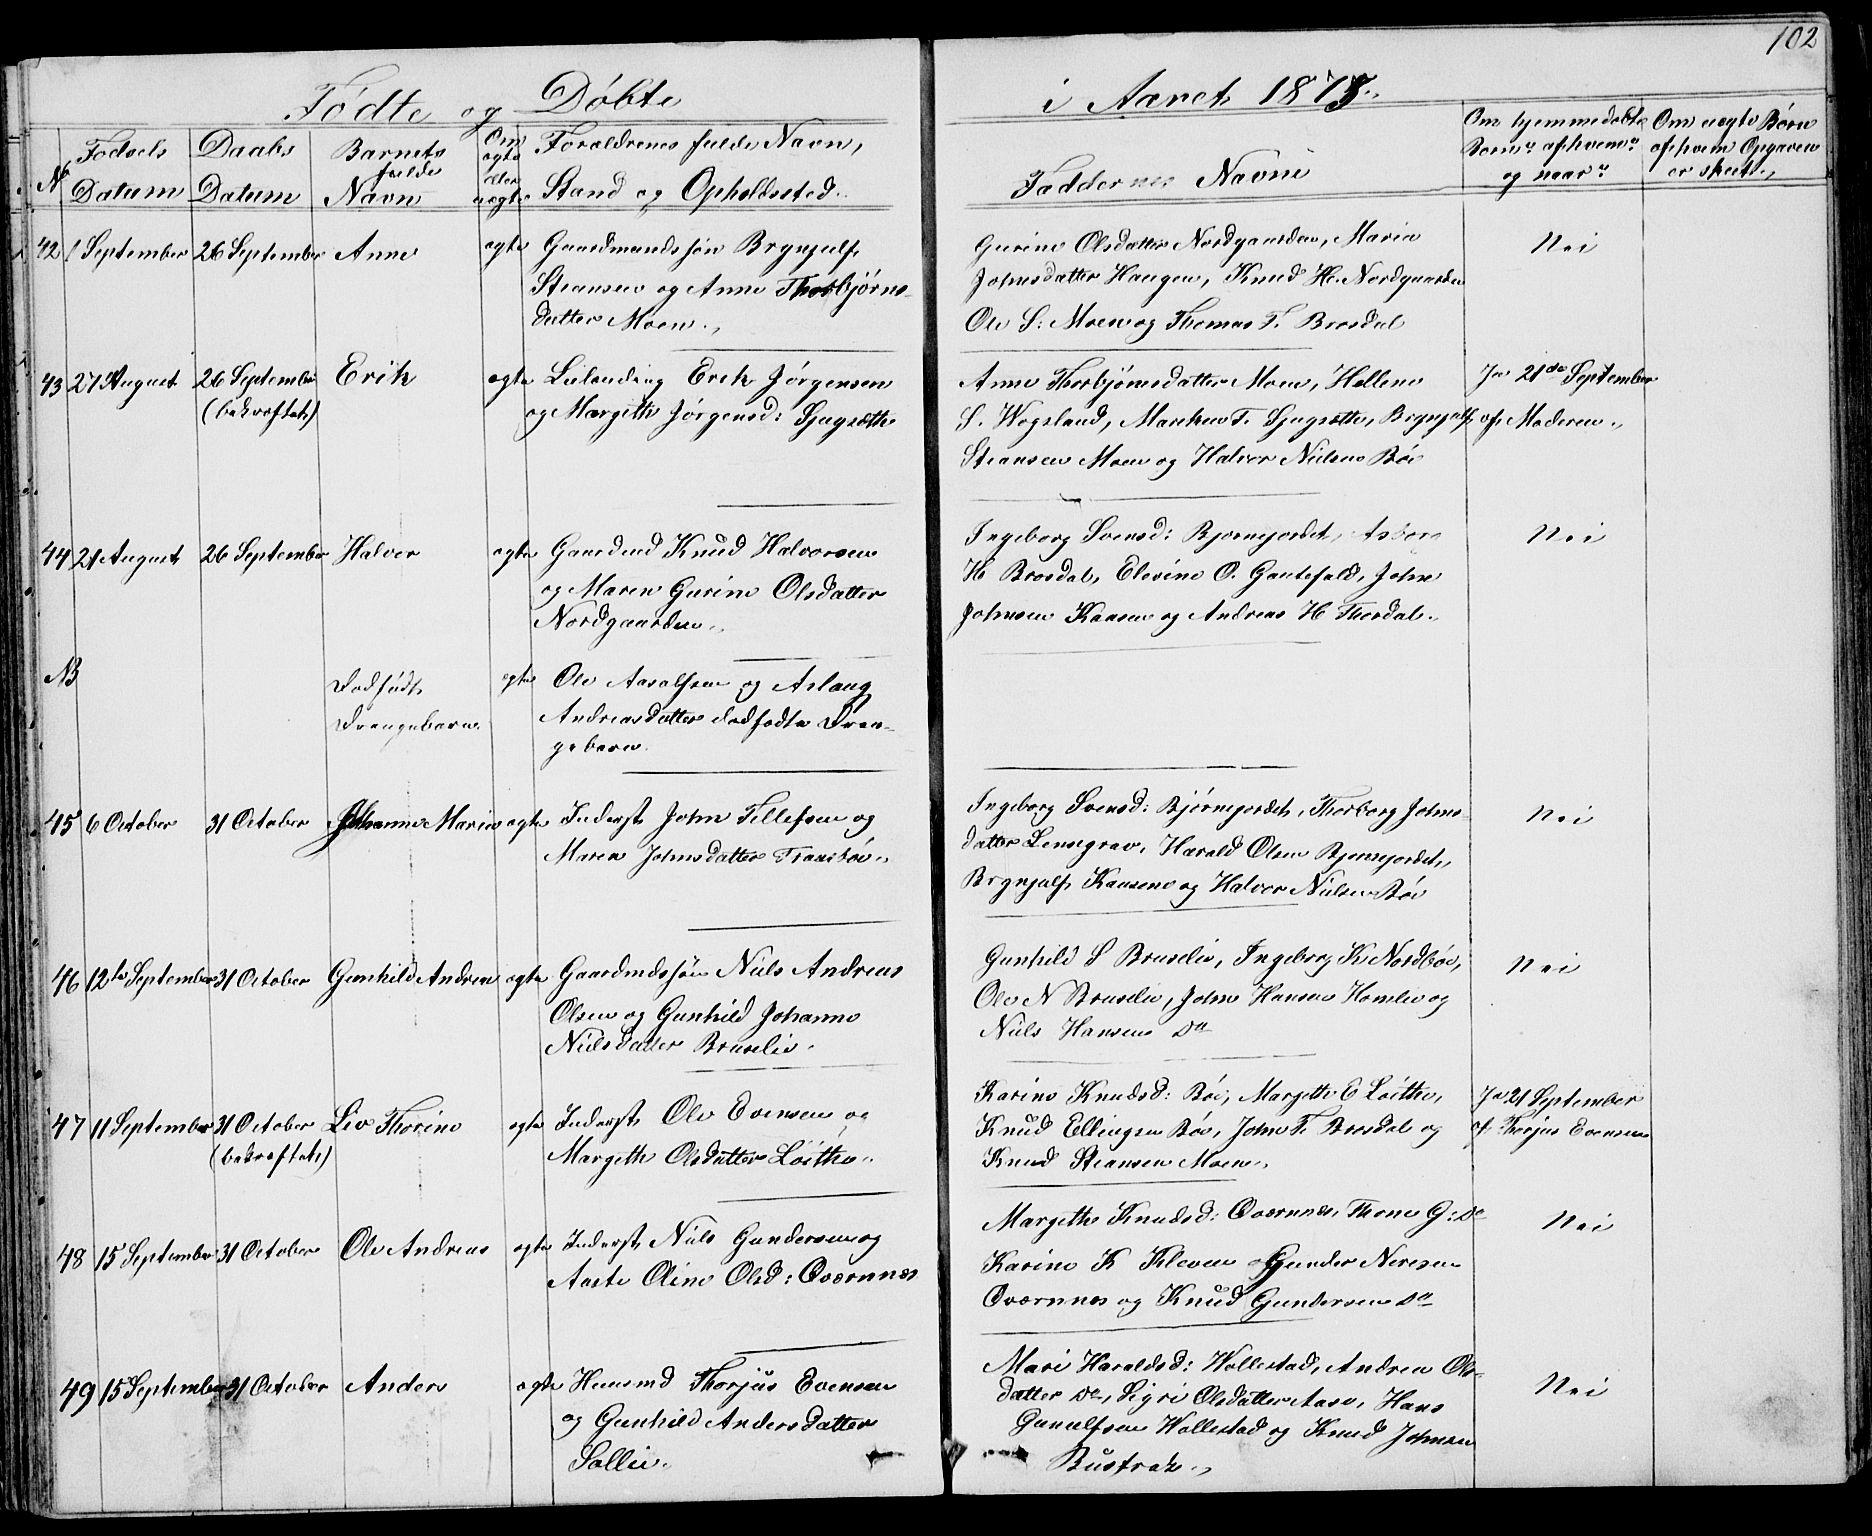 102
Fødte og Døbte i Aaret 1875.
No
Fødsels Datum
Daabs Datum
Barnets fulde Navn
Om ægte eller uægte
Forældrenes fulde Navn, Stand og Opholdssted.
Faddernes Navne
Om hjemmedøbte Børn af hvem og naar
Om uægte Børn af hvem Opgaven er skeet.
42 1 September 26 September Anne ægte Gaardmandssøn Brynjulf
Steansen og Anne Thorbjørns-
datter Moen.
Gurine Olsdatter Nordgaarden, Maria
Johnsdatter Haugen, Knud H. Nordgaarden
Ole S: Moen og Thomas T. Brosdal
Nei
43 27 August 26 September Erik ægte Leilending Erik Jørgensen
(bekræftet)
og Margith Jørgensd:
Anne Thorbjørnsdatter Moen, Hellene
S. Wegsland, Maren T. Brynjulf
Steansen Moen og Halvor Nielsen Bøe
Ja 21de September
af Moderen.
44 21 August 26 September Halvor ægte Gaardmd Knud Halvorsen
og Maren Gurine Olsdatter
Nordgaarden.
Ingeborg Svensd: Bjørnejordet, Asborg
H Brosdal, Elevine O. Gautefald, John
Johnsen Kaasen og Andreas H Thordal.
Nei
NB
Dødfødt
Drengebarn.
ægte Ole Aasolfsen og Aslaug
Andreasdatter dødfødte Dren-
gebarn.
45 6 October 31 October Johanne Marie ægte Inderst John Tellefsen og
Maren Johnsdatter
Ingeborg Svensd: Bjørnejordet, Thorborg Johns-
datter Lensgrav, Harald Olsen Bjørnejordet,
Brynjulf Kaasene og Halvor Nielsen Bøe
Nei
46 12te September 31 October Gunhild Andrea ægte Gaardmdssøn Niels Andreas
Olsen og Gunhild Johanne
Nielsdatter Bruselie.
Gunhild S Bruselie, Ingeborg K Nordbøe,
Ole N Bruselie, John Hansen Homlie og
Niels Hansen Do
Nei
47 11 September 31 October Liv Thorine ægte Inderst Ole Evensen og
(bekræftet)
Margith Olsdatter Løithe.
Karine Knudsd: Bøe, Margithe E Løithe,
Knud Ellingsen Bøe, John T. Brosdal og
Knud Steansen Moen.
Ja 21 September
af Thorjus Evensen
48 15 September 31 October Ole Andreas ægte Inderst Niels Gundersen og
Aaste Oline Olsd: Qværnnes
Margithe Knudsd: Qværnnes, Thone G: Do
Karine K Kleven og Gunder Neresen
Qværnnes og Knud Gundersen Do
Nei
49 15 September 31 October Anders ægte Huusmd Thorjus Evensen
og Gunhild Andersdatter
Sollie.
Mari Haraldsd: Wollestad, Andrea Ols-
datter Do, Sigri Olsdatter Aase, Hans
Gunulfsen Wollestad og Knud Johnsen
Bustrak.
Nei